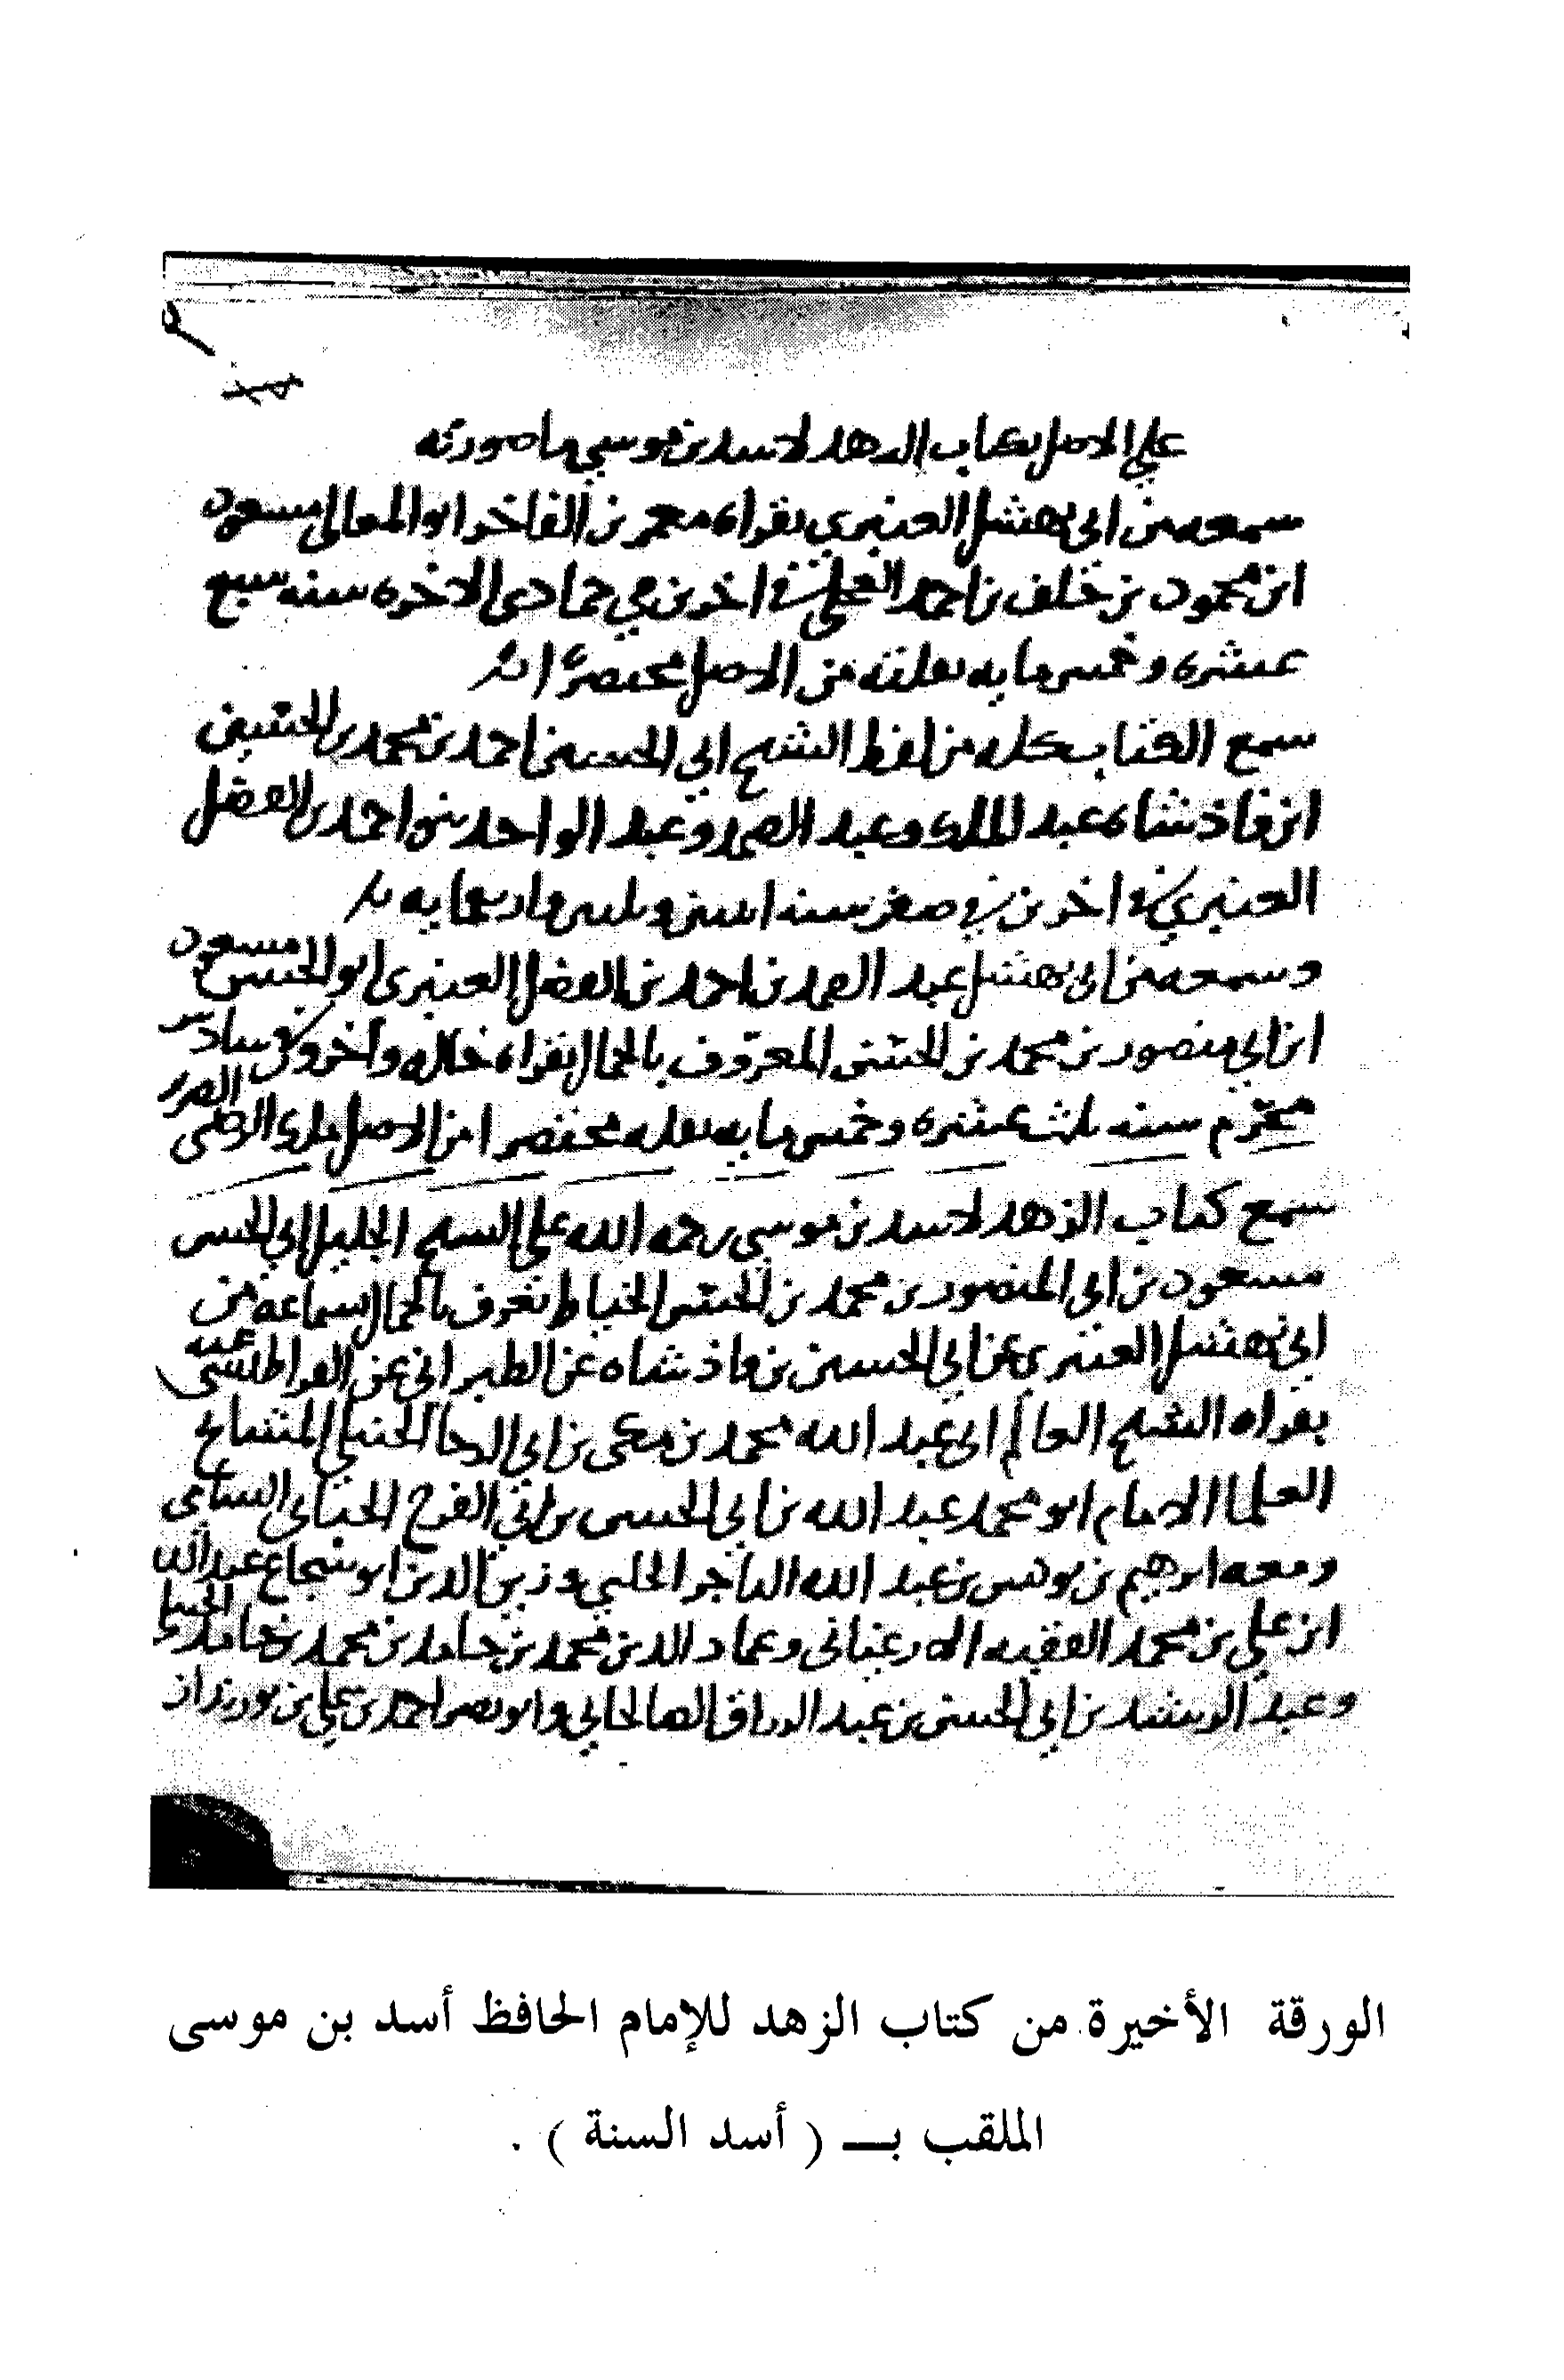 على الاصل بكتاب الزهد لاسد بن موسى ما صورته
سمعه من ابي نهشل العنبري بقراه معمر بن الفاخر ابو المعالي مسعود
ابن محمود بن خلف بن احمد العجلي في اخرين في جمادى الاخره سنه سبع
عشره وخمس مايه نقلته من الاصل مختصرا
سمع الكتاب كله من لفظ الشيخ ابي الحسين احمد بن محمد بن الحسين
ابن فاذشاه عبد الملك وعبد الصمد وعبد الواحد بنو احمد بن الفضل
العنبري في اخرين في صفر سنه اثنين وثلاثين واربعمايه
وسمعه من ابي نهشل عبد الصمد بن احمد بن الفضل العنبري ابو الحسن مسعود
ابن ابي منصور بن محمد بن الحسن المعروف بالجمال بقراه خاله واخرون في سادس
محرم سنه ثلث عشره وخمس مايه نقله مختصرا من الاصل
سمع كتاب الزهد لاسد بن موسى رحمه الله على الشيخ الجليل ابي الحسن
مسعود بن ابي المنصور بن محمد بن الحسن الخياط يعرف بالجمال سماعه من
ابي نهشل العنبري عن ابي الحسين بن فاذشاه عن الطبراني عن القراطيسي عنه
بقراه الشيخ العالم ابي عبد الله محمد بن مكي بن ابي الرجا الحنبلي المشايخ
العلما الامام ابو محمد عبد الله بن ابي الحسن بن ابي الفرج الجبائي الشامي
ومعه ابرهيم بن يونس بن عبد الله التاجر الحلبي وزين الدين ابو شجاع عبد الله
ابن علي بن محمد الفقيه وعماد الدين محمد بن حامد بن محمد بن حامد
وعبد الرشيد بن ابي الحسن بن عبد الرزاق الصالحاني وابو نصر احمد بن علي بن
الورقة الأخيرة من كتاب الزهد للإمام الحافظ أسد بن موسى
الملقب بـ ( أسد السنة ) .